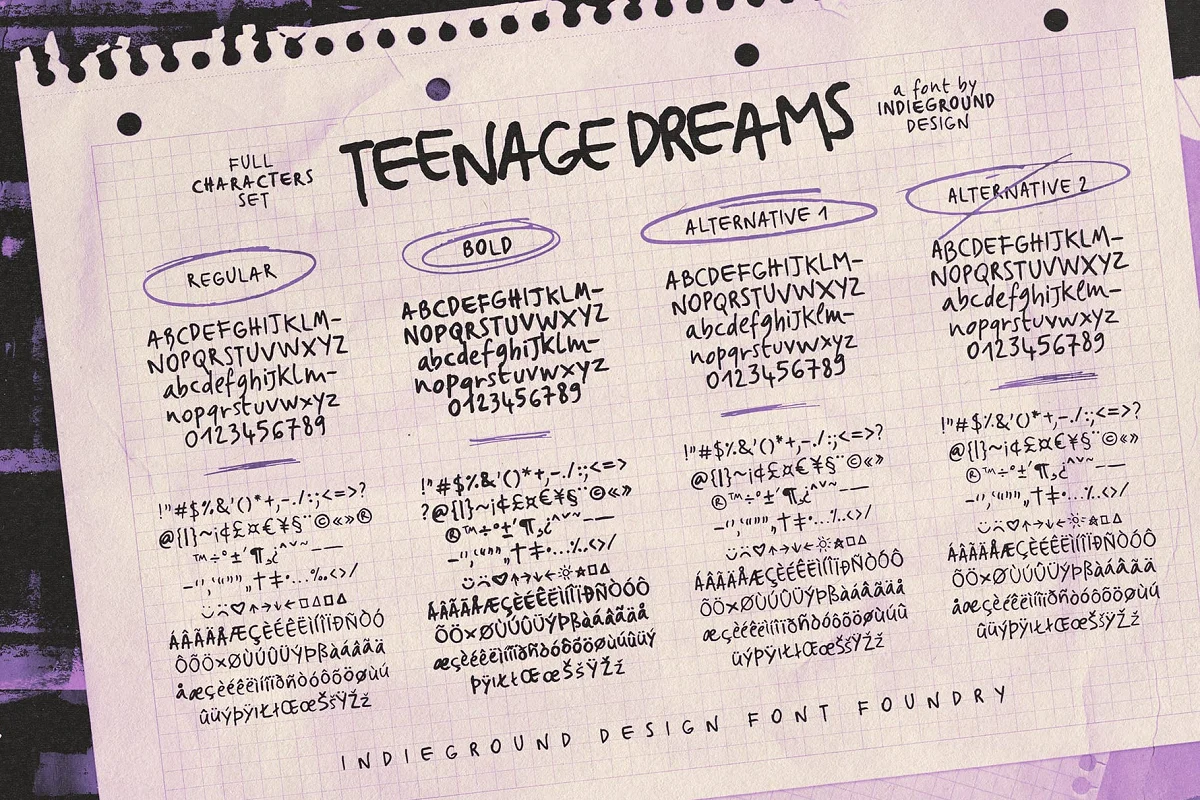 TEENAGE DREAMS
a font by
INDIEGROUND
DESIGN
FULL
CHARACTERS
SET
REGULAR
ABCDEFGHIJKLM–
NOPQRSTUVWXYZ
abcdefghijklm–
nopqrstuvwxyz
0123456789
!"#$%&'()*+,-./:;<=>?
@{|}~¡¢£¤€¥§¨©«»®
™÷°±´¶¸¿^ˇ~–—
–'‘,“”„†‡•…‰‹›/
♡↑→↓←□△□△
ÁÂÃÄÅÆÇÈÉÊËÌÍÎÏÐÑÒÓ
ÔÕÖ×ØÙÚÛÜÝÞßàáâãä
åæçèéêëìíîïðñòóôõöøùú
ûüýþÿıŁłŒœŠšŸŽž
BOLD
ABCDEFGHIJKLM–
NOPQRSTUVWXYZ
abcdefghijklm–
nopqrstuvwxyz
0123456789
!"#$%&'()*+,-./:;<=>
?@{|}~¡¢£¤€¥§¨©«»
®™÷°±´¶¸¿^ˇ~–—
–'‘,“”„†‡•…‰‹›/
♡↑→↓←☼☆□△
ÁÂÃÄÅÆÇÈÉÊËÌÍÎÏÐÑÒÓÔ
ÕÖ×ØÙÚÛÜÝÞßàáâãäå
æçèéêëìíîïðñòóôõöøùúûüý
þÿıŁłŒœŠšŸŽž
ALTERNATIVE 1
ABCDEFGHIJKLM–
NOPQRSTUVWXYZ
abcdefghijklm–
nopqrstuvwxyz
0123456789
!"#$%&'()*+,-./:;<=>?
@{|}~¡¢£¤€¥§¨©«»
®™÷°±´¶¸¿^ˇ~–—
–'‘,“”„†‡•…‰‹›/
♡↑→↓←☼☆□△
ÁÂÃÄÅÆÇÈÉÊËÌÍÎÏÐÑÒÓÔ
ÕÖ×ØÙÚÛÜÝÞßàáâãäå
æçèéêëìíîïðñòóôõöøùúû
üýþÿıŁłŒœŠšŸŽž
ALTERNATIVE 2
ABCDEFGHIJKLM–
NOPQRSTUVWXYZ
abcdefghijklm–
nopqrstuvwxyz
0123456789
!"#$%&'()*+,-./:;<=>?
@{|}~¡¢£¤€¥§¨©«»
®™÷°±´¶¸¿^ˇ~–—
–'‘,“”„†‡•…‰‹›/
♡↑→↓←☼☆□△
ÁÂÃÄÅÆÇÈÉÊËÌÍÎÏÐÑÒÓÔ
ÕÖ×ØÙÚÛÜÝÞßàáâãä
åæçèéêëìíîïðñòóôõöøùú
ûüýþÿıŁłŒœŠšŸŽž
INDIEGROUND DESIGN FONT FOUNDRY